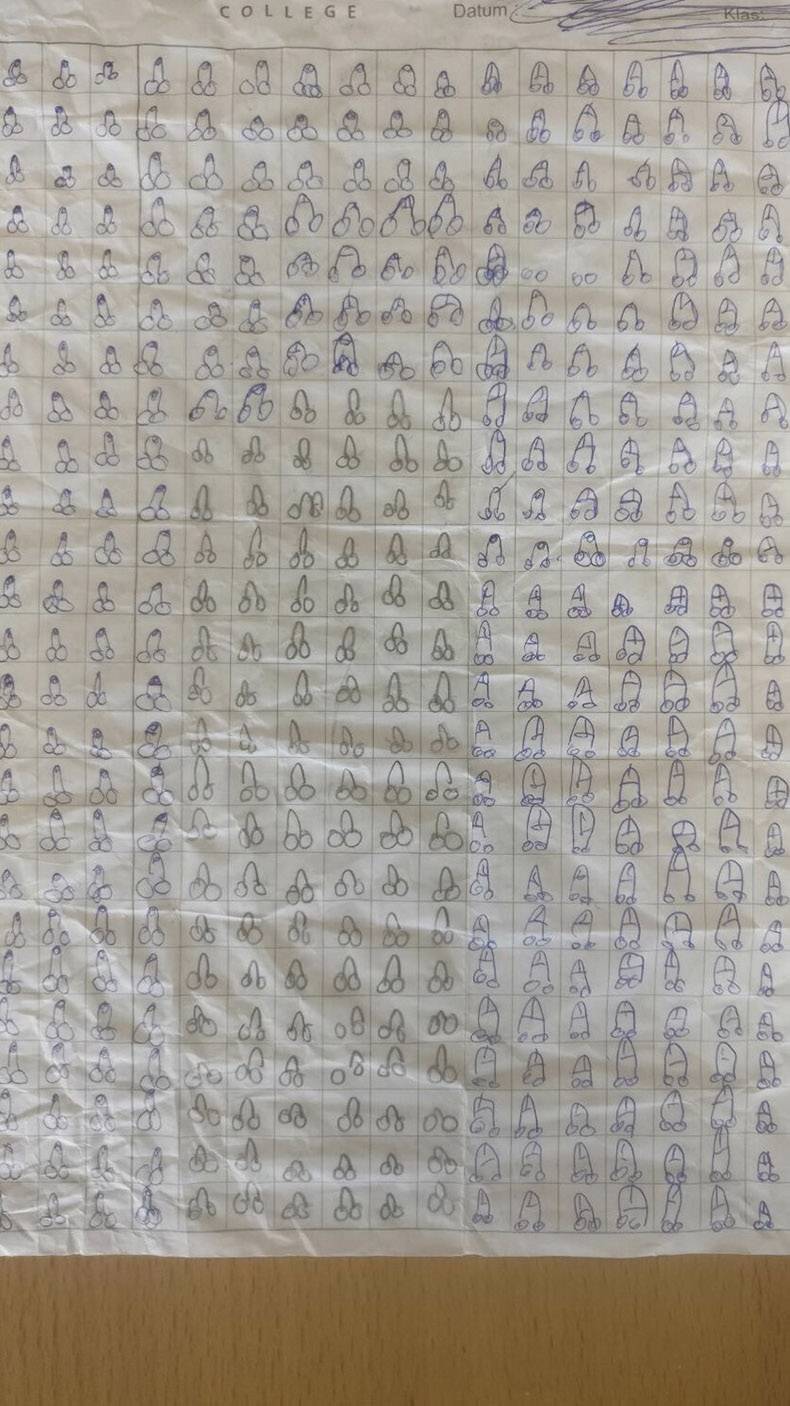 COLLEGE
Datum:
Klas: